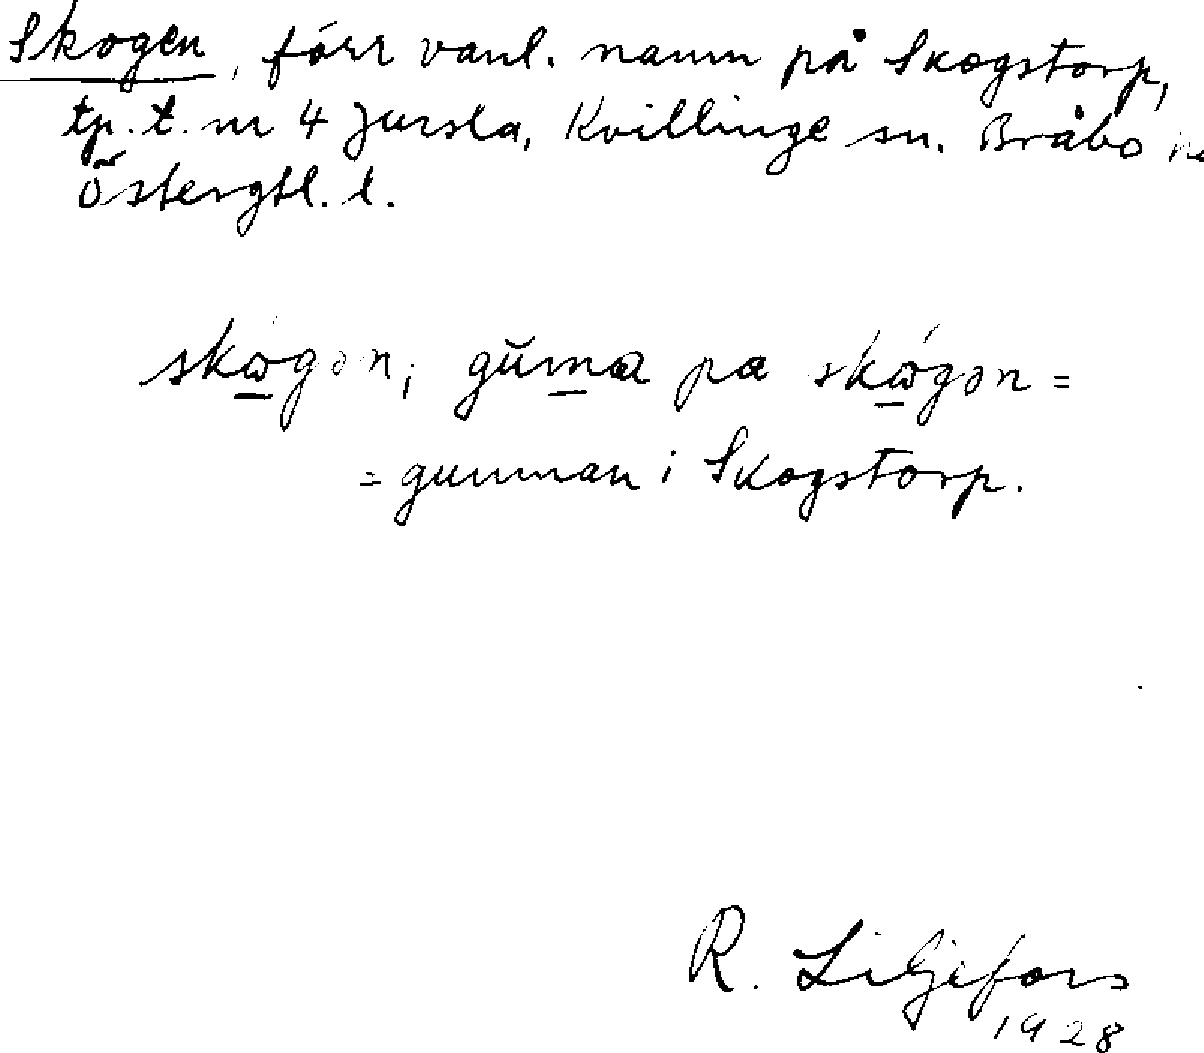 Skogen, förr vanl. namn på Skogstorp,
tp. t. nr 4 Jursla, Kvillinge sn. Bråbo
Östergtl. l.
skωgən; gŭma pa skώgən =
= gumman i Skogstorp.
R. Liljefors
1928